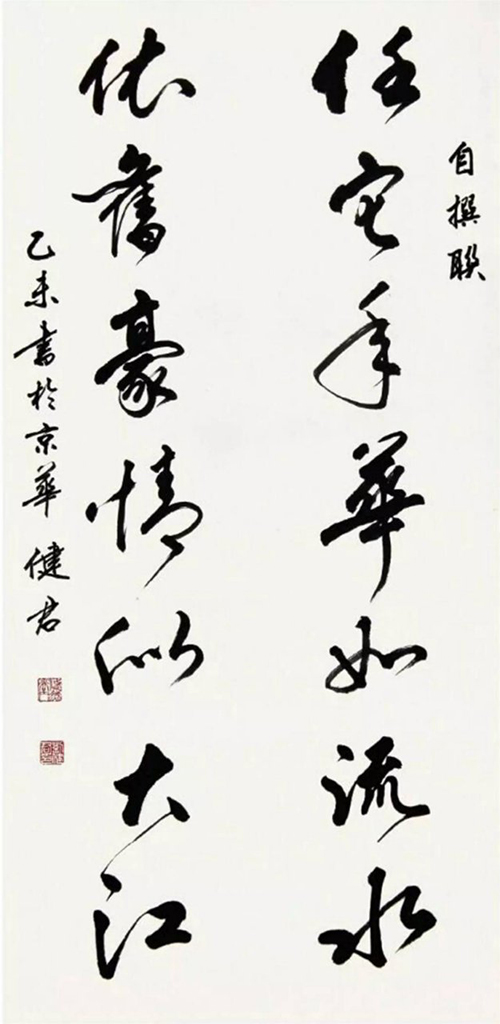 自撰聯
任它年華如流水
依舊豪情似大江
乙未書於京華健君